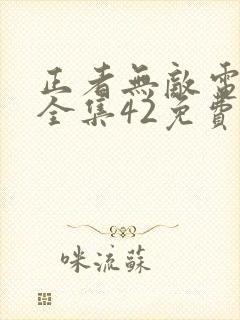 正者無敵電
全集42免費
咪流蘇